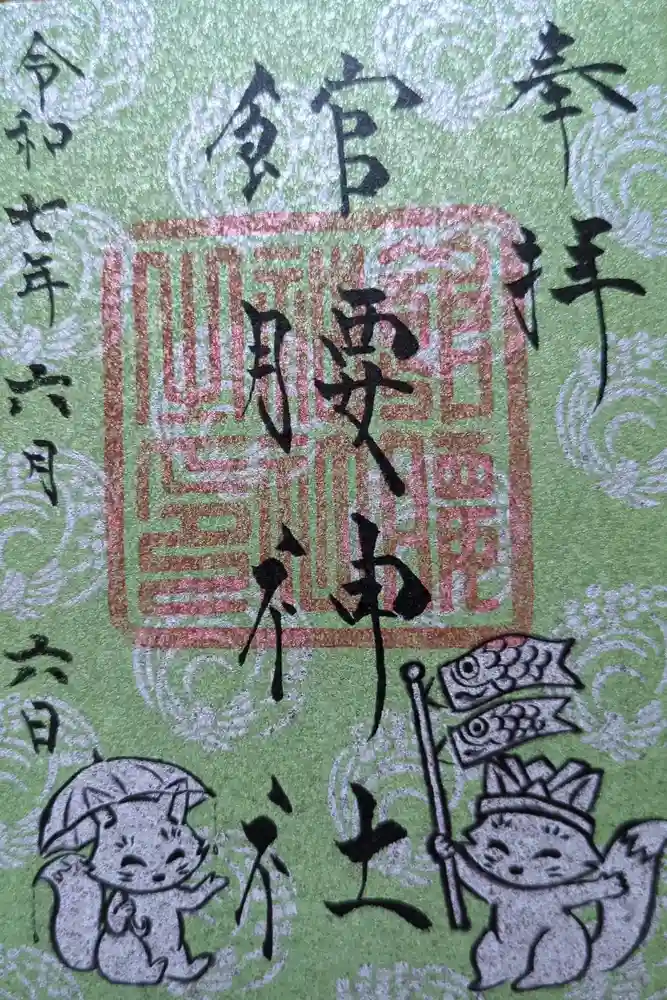 奉拝
館腰神社
令和七年六月六日